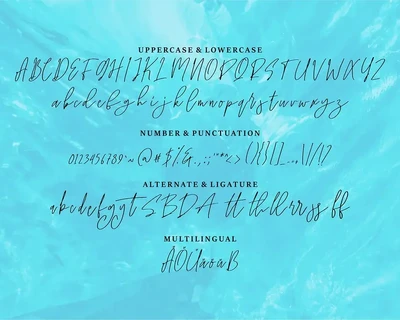 UPPERCASE & LOWERCASE
ABCDEFGHIJKLMNOPQRSTUVWXYZ
abcdefghijklmnopqrstuvwxyz
NUMBER & PUNCTUATION
0123456789
ALTERNATE & LIGATURE
abcdefgyt SBDA tt th ll rr ss ff
MULTILINGUAL
ÄÖÜäöüß